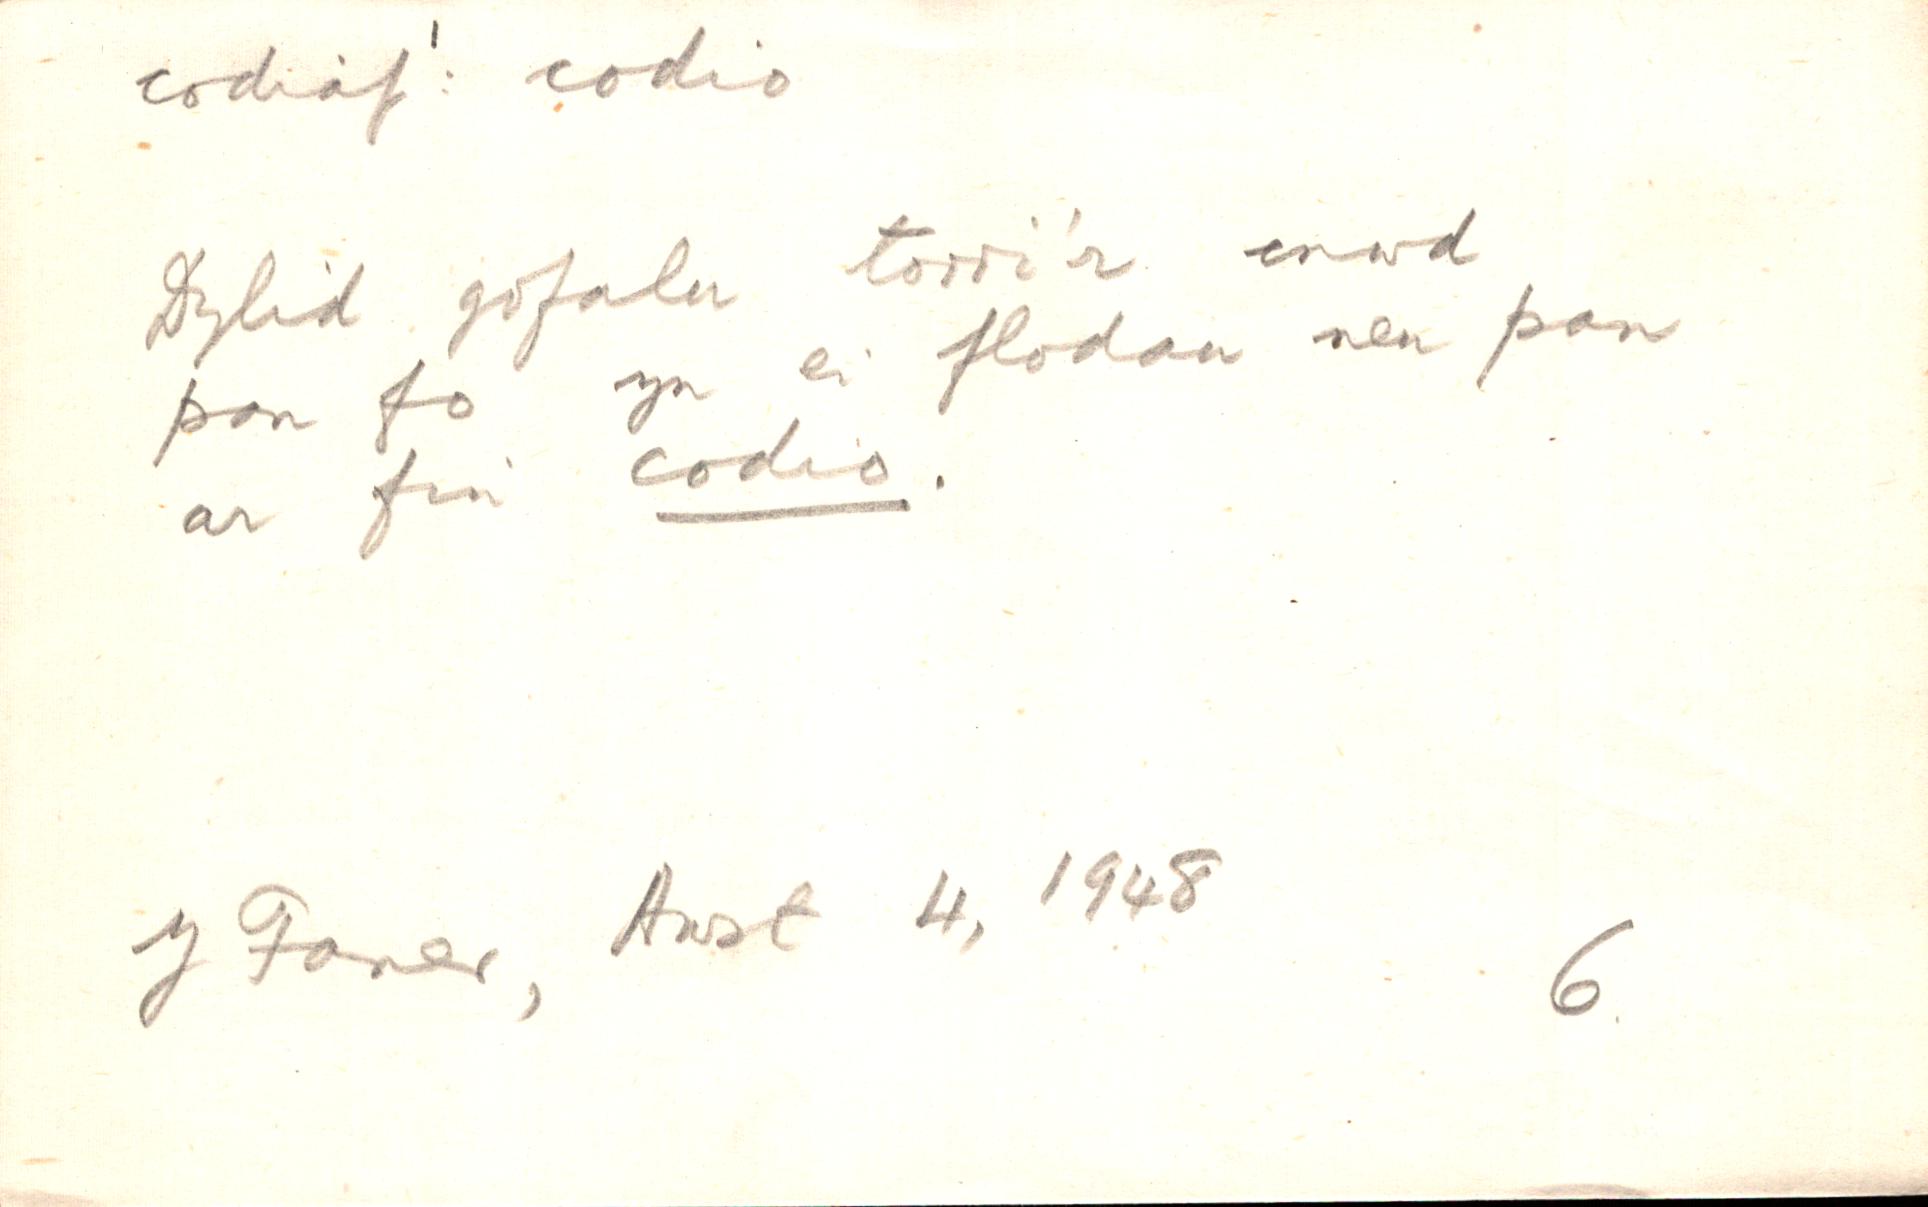 codiaf¹: codio
Dylid gofalu torri'r cnwd
pan fo yn ei flodau neu pan
ar fin codio.
Y Faner, Awst 4, 1948
6.